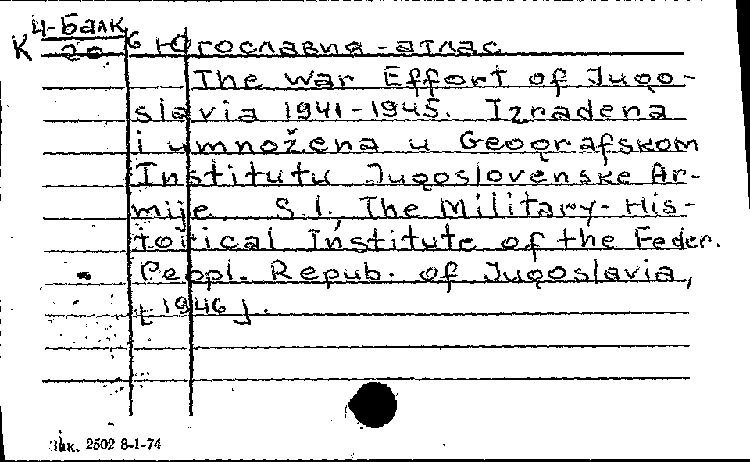 Ц-Балк
К 20 6 Югославия - атлас
The War Effort of Jugo-
slavia 1941-1945. Izrađena
i umnožena u Geografskom
Institutu Jugoslovenske Ar-
mije. S.l., The Military-His-
torical Institute of the Feder.
Peopl. Repub. of Jugoslavia,
[1946].
Зак. 2502 8-1-74